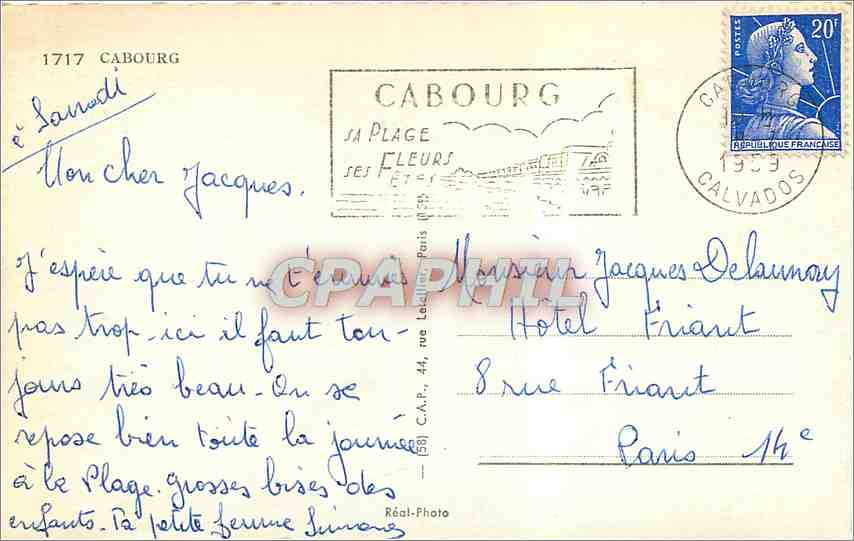 1717 CABOURG
ce Samedi
Mon cher Jacques.
J'espère que tu ne t'ennuies
pas trop - ici il faut tou-
jours très beau - On se
repose bien toute la journée
à la Plage. Grosses bises des
enfants - Ta petite femme Simone
CABOURG
SA PLAGE
SES FLEURS
FÊTES
POSTES
20F
REPUBLIQUE FRANÇAISE
CABOURG
1959
CALVADOS
Monsieur Jacques Delaunay
Hotel Friant
8 rue Friant
Paris 14e
(58) C.A.P., 44, rue Letellier, Paris
Réal-Photo
CPAPHIL